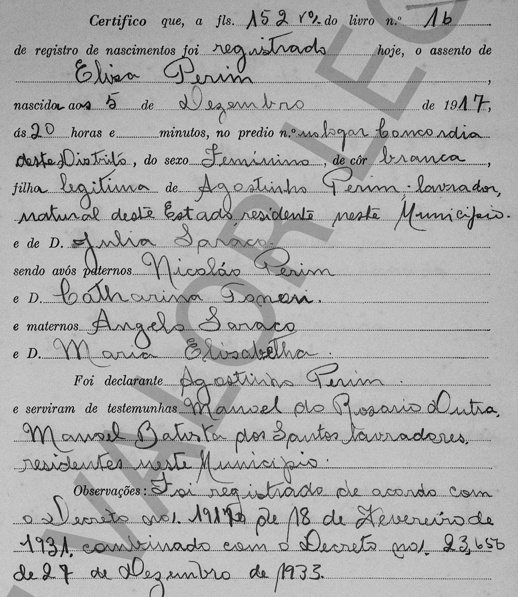 Certifico que, a fls. 152 vº. do livro n.º 16
de registro de nascimentos foi registrado hoje, o assento de
Elisa Perim,
nascida aos 5 de Dezembro de 1917,
ás 20 horas e minutos, no predio n.º no logar Concordia
deste Distrito, do sexo Feminino, de côr branca,
filha legitima de Agostinho Perim, lavrador,
natural deste Estado residente neste Municipio.
e de D. Julia Saraco.
sendo avós paternos Nicoláo Perim
e D. Catharina Tonon.
e maternos Angelo Saraco
e D. Maria Elisabetha.
Foi declarante Agostinho Perim.
e serviram de testemunhas Manoel do Rosario Dutra,
Manoel Batista dos Santos lavradores,
residentes neste Municipio.
Observações: Foi registrado de acordo com
o Decreto nº. de 18 de Fevereiro de
1931, combinado com o Decreto nº. 23,650
de 27 de Dezembro de 1933.
VALOR LEG